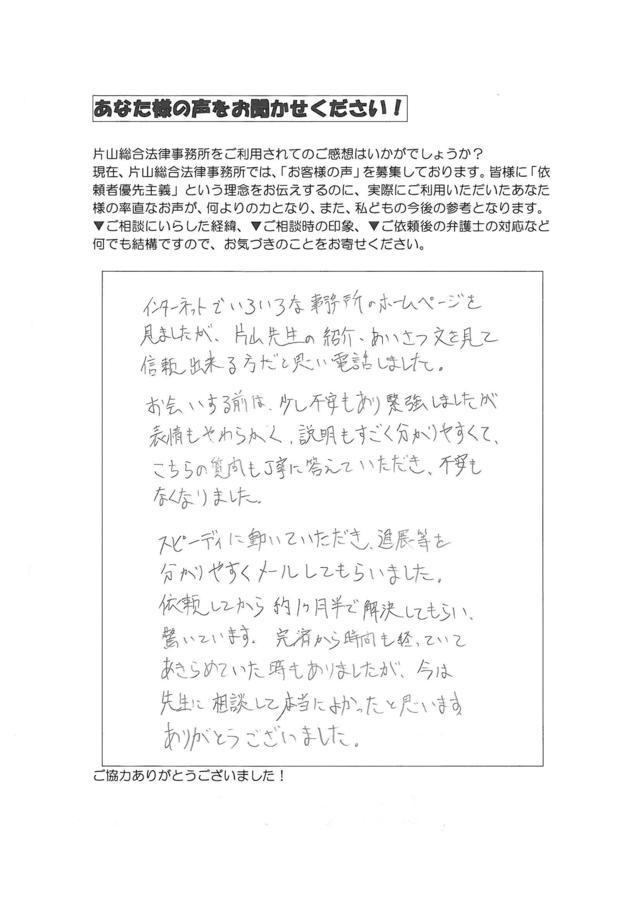 あなた様の声をお聞かせください！
片山総合法律事務所をご利用されてのご感想はいかがでしょうか？
現在、片山総合法律事務所では、「お客様の声」を募集しております。皆様に「依
頼者優先主義」という理念をお伝えするのに、実際にご利用いただいたあなた
様の率直なお声が、何よりの力となり、また、私どもの今後の参考となります。
▼ご相談にいらした経緯、▼ご相談時の印象、▼ご依頼後の弁護士の対応など
何でも結構ですので、お気づきのことをお寄せください。
インターネットでいろいろな事務所のホームページを
見ましたが、片山先生の紹介・あいさつ文を見て
信頼出来る方だと思い電話しました。
お会いする前は、少し不安もあり緊張しましたが
表情もやわらかく、説明もすごく分かりやすくて、
こちらの質問も丁寧に答えていただき、不安も
なくなりました。
スピーディに動いていただき、進展等を
分かりやすくメールしてもらいました。
依頼してから約1ヶ月半で解決してもらい、
驚いています。完済から時間も経っていて
あきらめていた時もありましたが、今は
先生に相談して本当によかったと思います
ありがとうございました。
ご協力ありがとうございました！